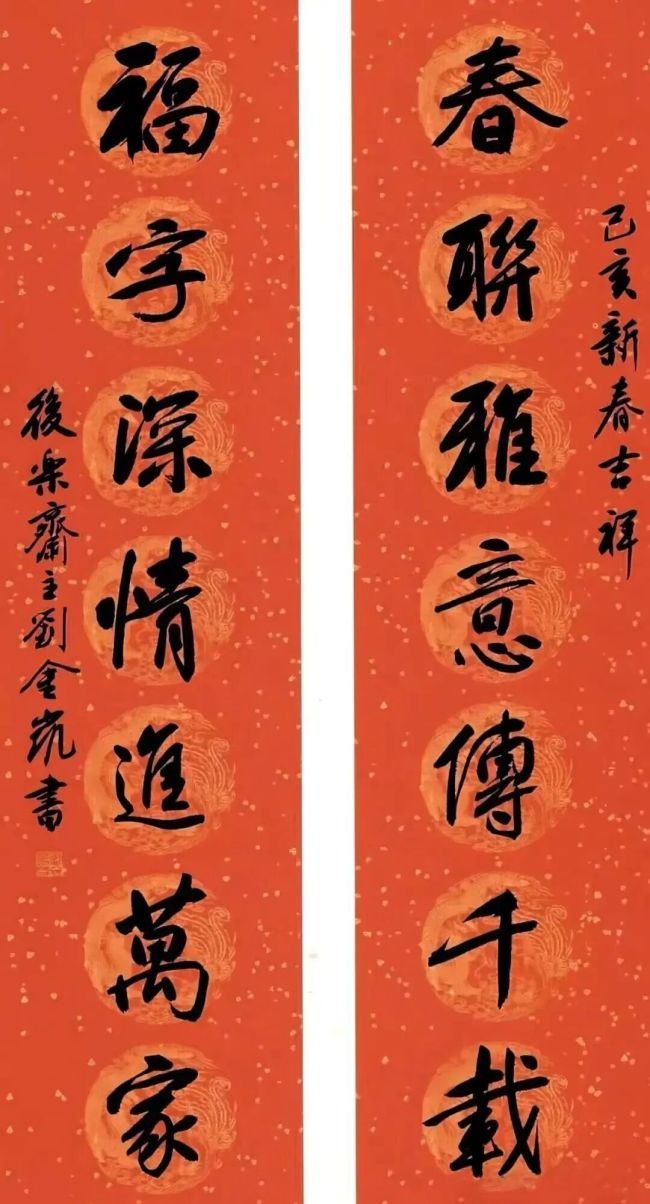 己亥新春吉祥
春聯雅意傳千載
福字深情進萬家
後樂齋主劉金凱書